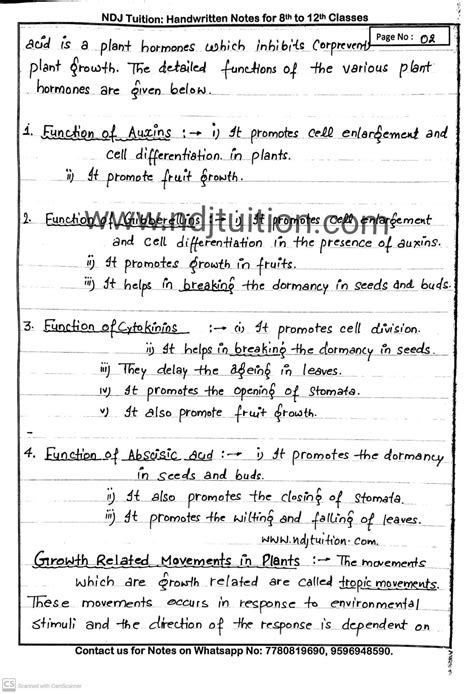 NDJ Tuition: Handwritten Notes for 8th to 12th Classes
Page No: 02
acid is a plant hormones which inhibits (or prevent)
plant growth. The detailed functions of the various plant
hormones are given below.
1. Function of Auxins :→ i) It promotes cell enlargement and
cell differentiation in plants.
ii) It promote fruit growth.
2. Function of Gibberellins :→ i) It promotes cell enlargement
www.ndjtuition.com
and cell differentiation in the presence of auxins.
ii) It promotes growth in fruits.
iii) It helps in breaking the dormancy in seeds and buds.
3. Function of Cytokinins :→ i) It promotes cell division.
ii) It helps in breaking the dormancy in seeds.
iii) They delay the ageing in leaves.
iv) It promotes the opening of stomata.
v) It also promote fruit growth.
4. Function of Abscisic acid :→ i) It promotes the dormancy
in seeds and buds.
ii) It also promotes the closing of stomata.
iii) It promotes the wilting and falling of leaves.
www.ndjtuition.com.
Growth Related Movements in Plants :→ The movements
which are growth related are called tropic movements.
These movements occurs in response to environmental
stimuli and the direction of the response is dependent on
Contact us for Notes on Whatsapp No: 7780819690, 9596948590.
CS Scanned with CamScanner